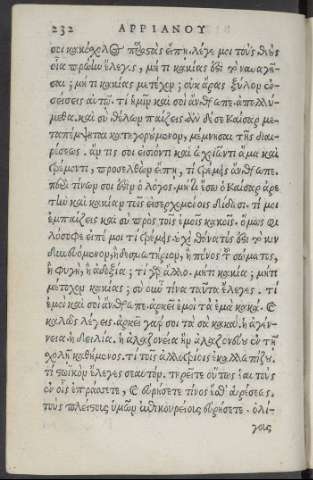 232 ΑΡΡΙΑΝΟΥ
σοι κακόχολος παραστὰς εἴπῃ. λέγε μοι τοὺς θεούς
οἷα πρώην ἔλεγες, μή τι κακίας ἐστὶ τὸ ναυαγῆ-
σαι; μή τι κακίας μετέχον; οὐκ ἄρας ξύλον ἐν-
σείσεις αὐτῷ. τί ἡμῖν καὶ σοὶ ἄνθρωπε. ἀπολλύ-
μεθα. καὶ σὺ ἐλθὼν παίζεις. ἂν δέ σε Καῖσαρ με-
ταπέμψηται κατηγορούμενον, μέμνησαι τῆς διαι-
ρέσεως. ἄν τις σοι εἰσιόντι καὶ ὠχριῶντι ἅμα καὶ
τρέμοντι, προσελθὼν εἴπῃ, τί τρέμεις ἄνθρωπε.
περὶ τίνων σοι ἐστὶν ὁ λόγος. μή τι ἔσω ὁ Καῖσαρ ἀρε-
τὴν καὶ κακίαν τοῖς εἰσερχομένοις δίδωσι. τί μοι
ἐμπαίζεις καὶ σὺ πρὸς τοῖς ἐμοῖς κακοῖς. ὅμως φι-
λόσοφε εἰπέ μοι τί τρέμεις; οὐχὶ θάνατός ἐστι τὸ κιν-
δυνευόμενον, ἢ δεσμωτήριον, ἢ πόνος τοῦ σώματος,
ἢ φυγὴ, ἢ ἀδοξία; τί γὰρ ἄλλο. μή τι κακία; μή τι
μέτοχον κακίας; σὺ οὖν τίνα ταῦτα ἔλεγες. τί
ἐμοὶ καὶ σοὶ ἄνθρωπε. ἀρκεῖ ἐμοὶ τὰ ἐμὰ κακά. καὶ
καλῶς λέγεις. ἀρκεῖ γάρ σοι τὰ σὰ κακά. ἡ ἀγέν-
νεια. ἡ δειλία. ἡ ἀλαζονεία ἣν ἠλαζονεύου ἐν τῇ
σχολῇ καθήμενος. τί τοῖς ἀλλοτρίοις ἐκαλλωπίζου.
τί στωϊκὸν ἔλεγες σεαυτόν. τηρεῖτε οὕτως ἑαυτοὺς
ἐν οἷς ἐπράσσετε, καὶ εὑρήσετε τίνος ἐσθ' αἱρέσεως.
τοὺς πλείστους ὑμῶν ἐπικουρείους εὑρήσετε. ὀλί-
γοις